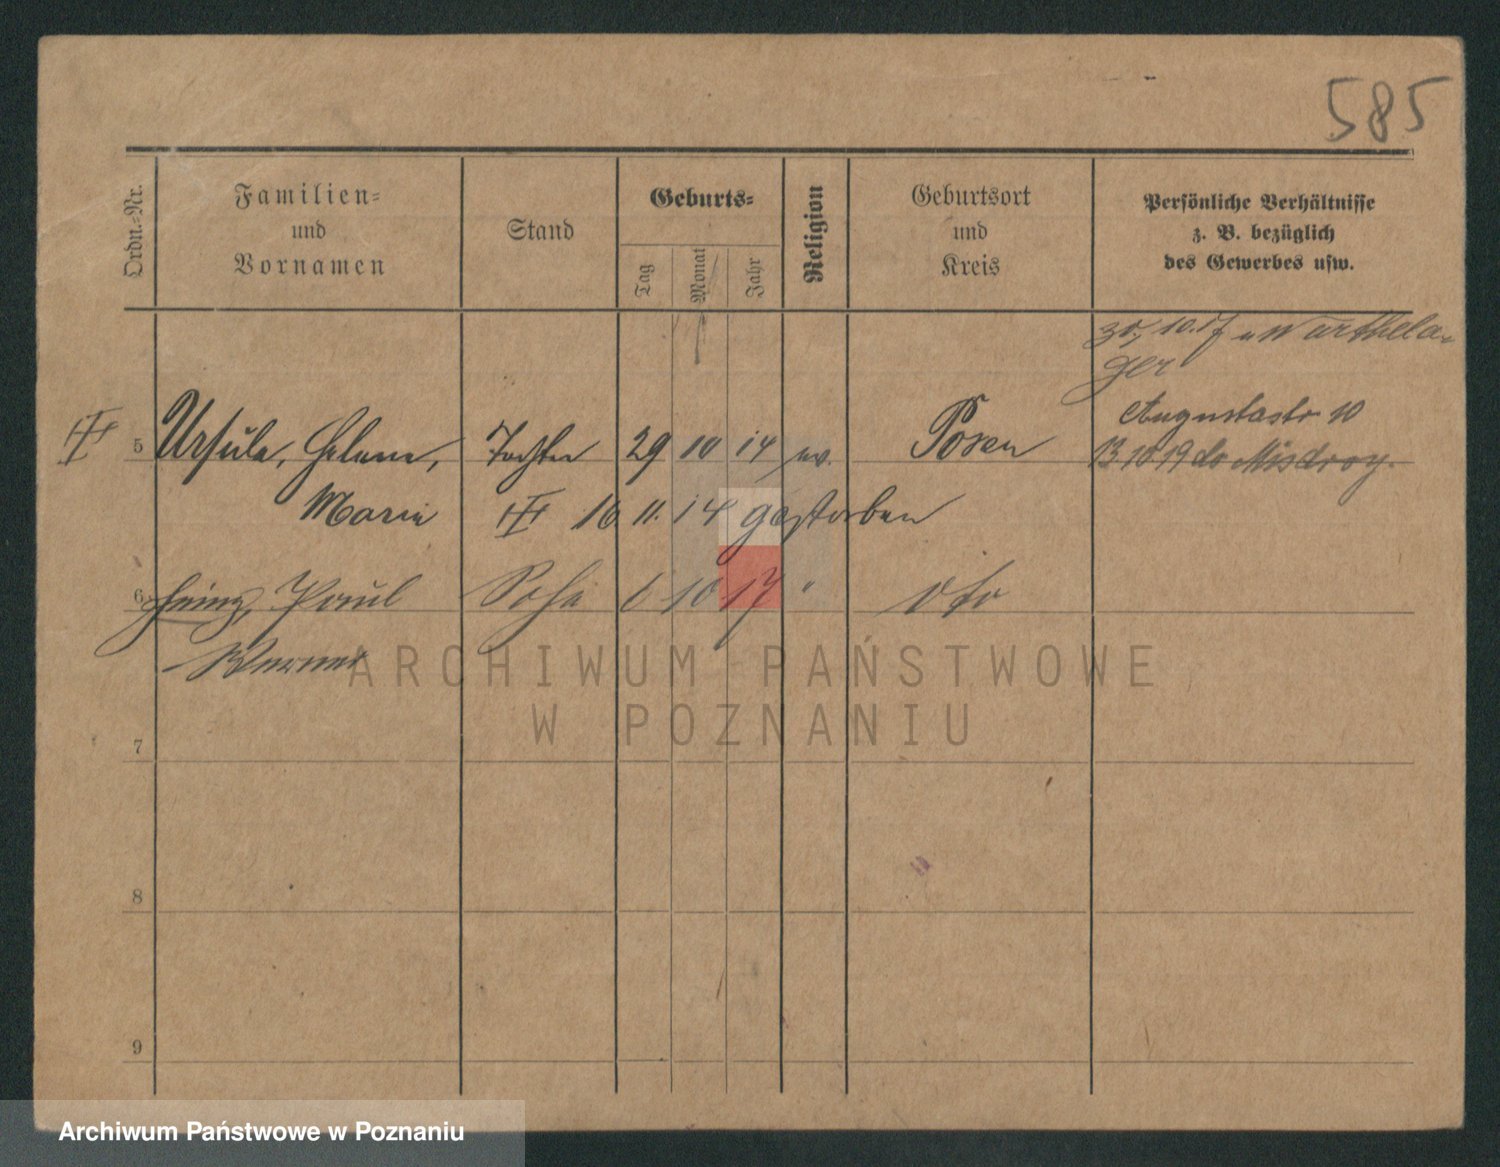 585
Ordn.-Nr.
Familien-
und
Vornamen
Stand
Geburts-
Tag
Monat
Jahr
Religion
Geburtsort
und
Kreis
Persönliche Verhältnisse
z. B. bezüglich
des Gewerbes usw.
10.17 Warthela-
ger
Augustastr 10
5 Ursula, Helene, Tochter 29 10 14 ev. Posen 13 10 19 do Misdroy.
Marie 16 11. 14 gestorben
6 Heinz, Paul Sohn 6 10 17 " dto
Werner
ARCHIWUM PAŃSTWOWE
W POZNANIU
7
8
9
Archiwum Państwowe w Poznaniu